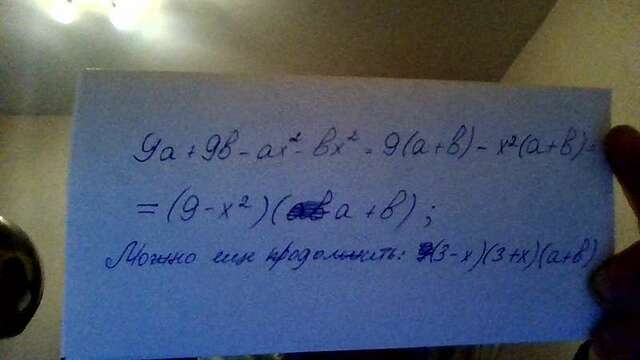 9a + 9в - ax² - вx² = 9(a+в) - x²(a+в) =
= (9 - x²)(a + в);
Можно ещё продолжить: (3-x)(3+x)(a+в)